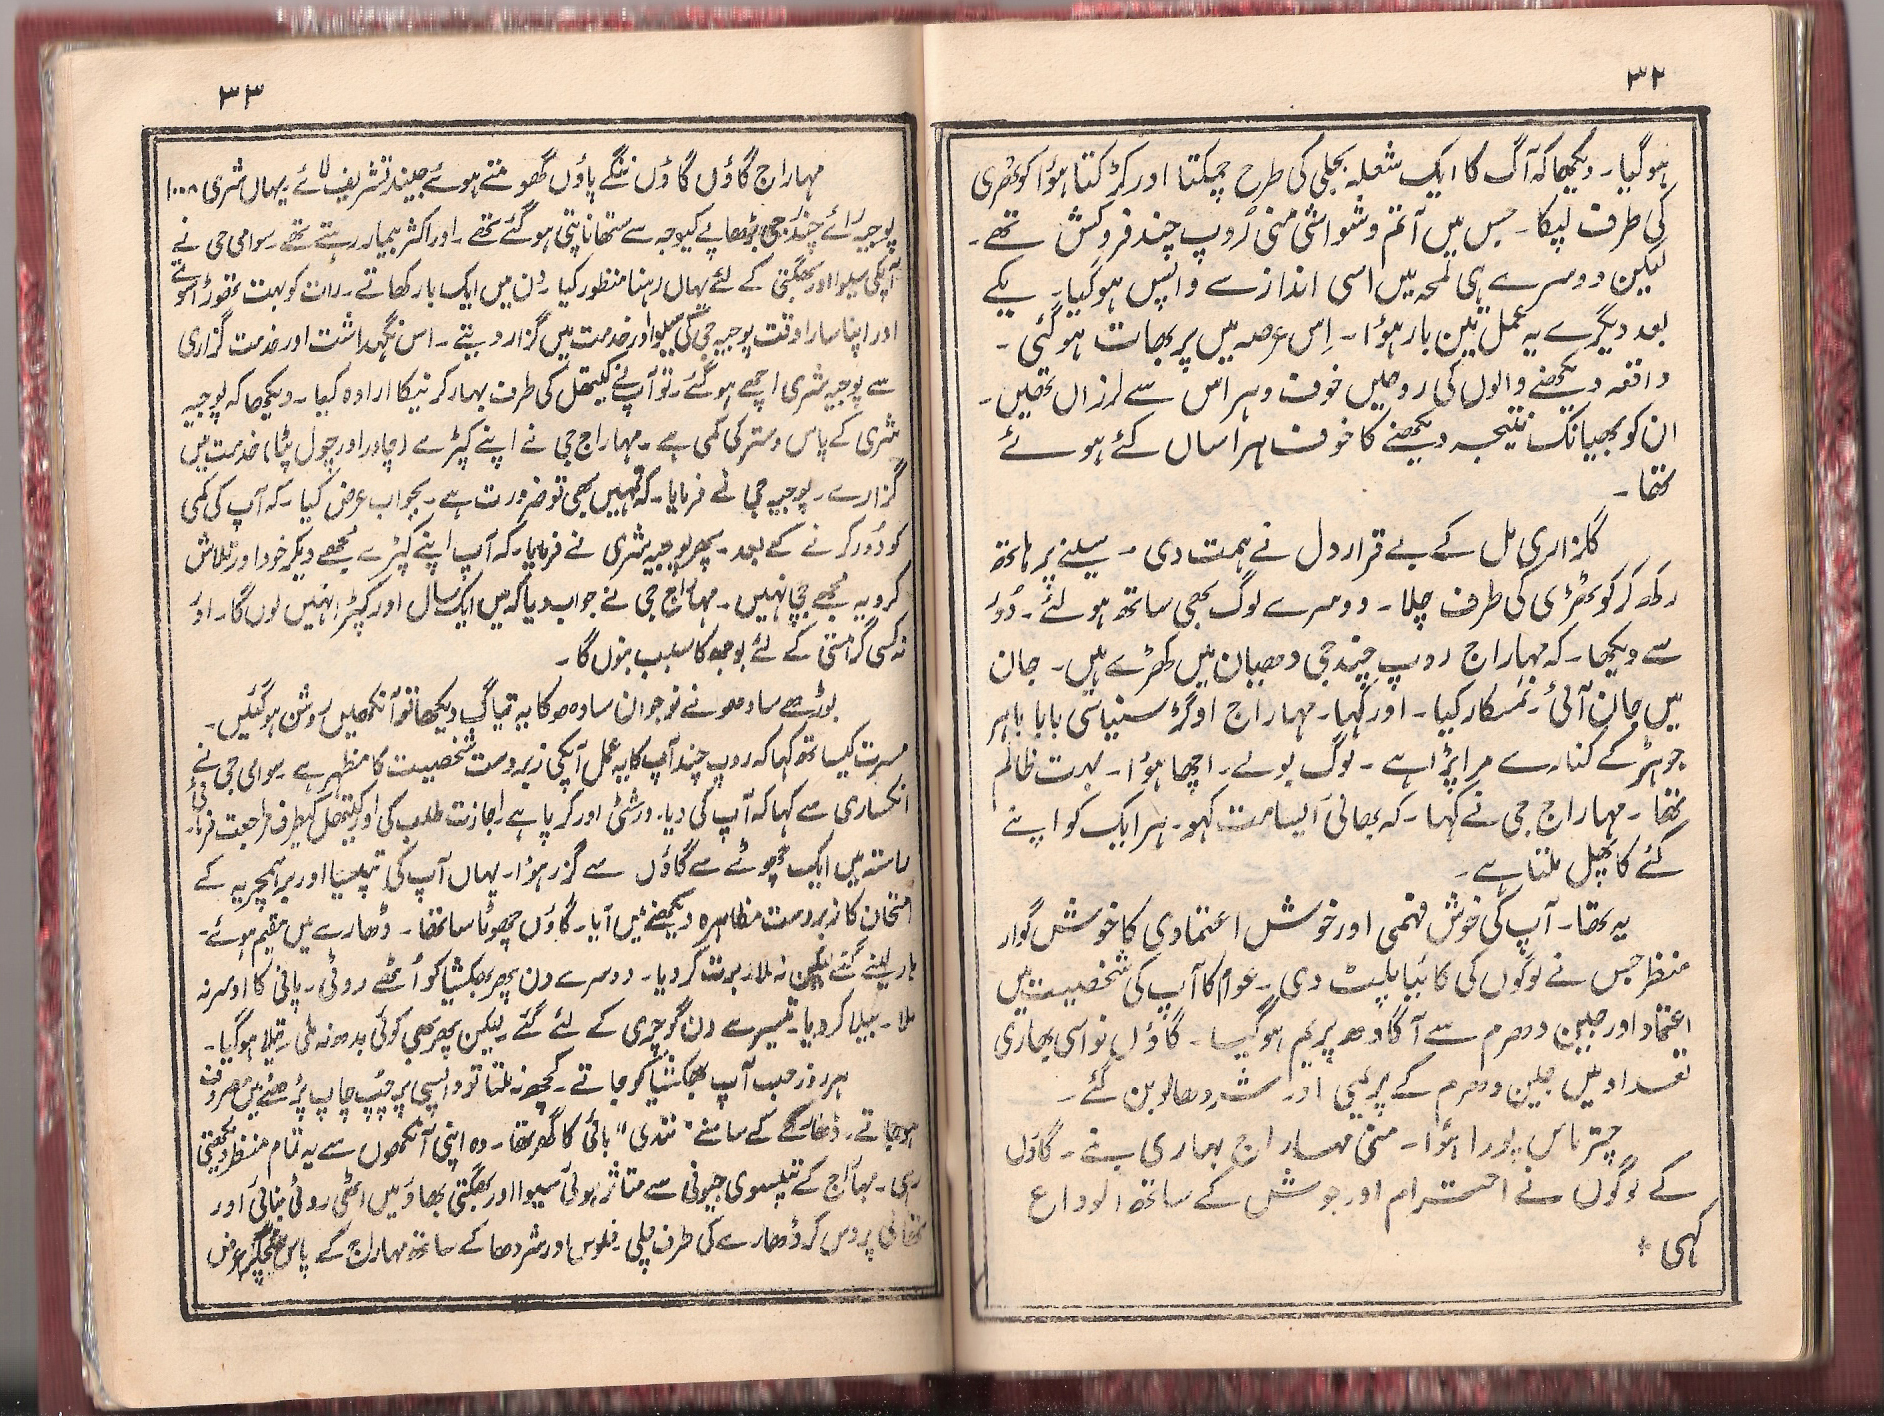 ۳۲
ہوگیا۔ دیکھا کہ آگ کا ایک شعلہ بجلی کی طرح چمکتا اور کڑکتا ہؤا کوٹھری
کی طرف لپکا۔ جس میں آتم وشواشی منی رُوپ چند فروکش تھے۔
لیکن دوسرے ہی لمحہ میں اسی انداز سے واپس ہوگیا۔ یکے
بعد دیگرے یہ عمل تین بار ہؤا۔ اِس عرصہ میں پربھات ہوگئی۔
واقعہ دیکھنے والوں کی روحیں خوف وہراس سے لرزاں تھیں۔
ان کو بھیانک نتیجہ دیکھنے کا خوف ہراساں کئے ہوئے
تھا۔
گلزاری مل کے بے قرار دل نے ہمت دی۔ سینے پر ہاتھ
رکھ کر کوٹھڑی کی طرف چلا۔ دوسرے لوگ بھی ساتھ ہو لئے۔ دُور
سے دیکھا۔ کہ مہاراج روپ چند جی دھیان میں کھڑے ہیں۔ جان
میں جان آئی۔ نمسکار کیا۔ اور کہا۔ مہاراج اوگڑ سنیاسی بابا باہر
جوہڑ کے کنارے مرا پڑا ہے۔ لوگ بولے۔ اچھا ہؤا۔ بہت ظالم
تھا۔ مہاراج جی نے کہا۔ کہ بھائی ایسا مت کہو۔ ہر ایک کو اپنے
کئے کا پھل ملتا ہے۔
یہ تھا۔ آپ کی خوش فہمی اور خوش اعتمادی کا خوش گوار
منظر جس نے لوگوں کی کایا پلٹ دی۔ عوام کا آپ کی شخصیت میں
اعتماد اور جین دھرم سے آگادھ پریم ہوگیا۔ گاؤں نواسی بھاری
تعداد میں جین دھرم کے پریمی اور شردھالو بن گئے۔
چترماس پورا ہؤا۔ منی مہاراج بہاری بنے۔ گاؤں
کے لوگوں نے احترام اور جوش کے ساتھ الوداع
کہی
۳۳
مہاراج گاؤں گاؤں ننگے پاؤں گھومتے ہوئے جیند تشریف لائے۔ یہاں شری ۱۰۰۸
پوجیہ رائے چند جی بڑھاپے کیوجہ سے ستھانا پتی ہوگئے تھے۔ اور اکثر بیمار رہتے تھے۔ سوامی جی نے
آپکی سیوا اور بھگتی کے لئے یہاں رہنا منظور کیا۔ دن میں ایک بار کھاتے۔ رات کو بہت تھوڑا سوتے
اور اپنا سارا وقت پوجیہ جی کی سیوا اور خدمت میں گزار دیتے۔ اس نگہداشت اور خدمت گزاری
سے پوجیہ شری اچھے ہوگئے۔ تو آپ نے کیتھل کی طرف بہار کرنیکا ارادہ کیا۔ دیکھا کہ پوجیہ
شری کے پاس وستر کی کمی ہے۔ مہاراج جی نے اپنے کپڑے (چادر اور چول پٹا) خدمت میں
گزارے۔ پوجیہ جی نے فرمایا۔ کہ تمہیں بھی تو ضرورت ہے۔ بجواب عرض کیا۔ کہ آپ کی کمی
کو دُور کرنے کے بعد۔ پھر پوجیہ شری نے فرمایا۔ کہ آپ اپنے کپڑے مجھے دیکر خود اور تلاش
کرو یہ مجھے جچی نہیں۔ مہاراج جی نے جواب دیا کہ میں ایک سال اور کپڑا نہیں لوں گا۔ اور
نہ کسی گرہستی کے لئے بوجھ کا سبب بنوں گا۔
بوڑھے سادھو نے نوجوان سادھو کا یہ تیاگ دیکھا تو آنکھیں روشن ہوگئیں۔
مسرت کیساتھ کہا کہ روپ چند آپ کا یہ عمل آپکی زبردست شخصیت کا مظہر ہے۔ سوامی جی نے
انکساری سے کہا کہ آپ کی دیا۔ درشٹی اور کرپا ہے۔ اجازت طلب کی اور کیتھل کیطرف مراجعت فرمائی
راستہ میں ایک چھوٹے سے گاؤں سے گزر ہؤا۔ یہاں آپ کی تپسیا اور برہمچریہ کے
امتحان کا زبردست مظاہرہ دیکھنے میں آیا۔ گاؤں چھوٹا سا تھا۔ ڈھارے میں مقیم ہوئے۔
ہار لینے گئے لیکن نہ ملا۔ برت کر دیا۔ دوسرے دن پھر بھکشا کو اُٹھے روٹی۔ پانی کا اوسر نہ
ملا۔ بیلا کر دیا۔ تیسرے دن گوچری کے لئے گئے۔ لیکن پھر بھی کوئی بدھ نہ ملی۔ تیلا ہوگیا۔
ہر روز جب آپ بھکشا کو جاتے۔ کچھ نہ ملتا تو واپسی پر چُپ چاپ پڑھنے میں مصروف
ہو جاتے۔ ڈھارے کے سامنے "نندی" بائی کا گھر تھا۔ وہ اپنی آنکھوں سے یہ تمام منظر دیکھتی
رہی۔ مہاراج کے تپسوی جیونی سے متاثر ہوئی سیوا اور بھگتی بھاؤ میں اٹھی روٹی بنائی اور
تھالی پروس کر ڈھارے کی طرف چلی۔ خلوص اور شردھا کے ساتھ مہاراج کے پاس پہنچکر عرض